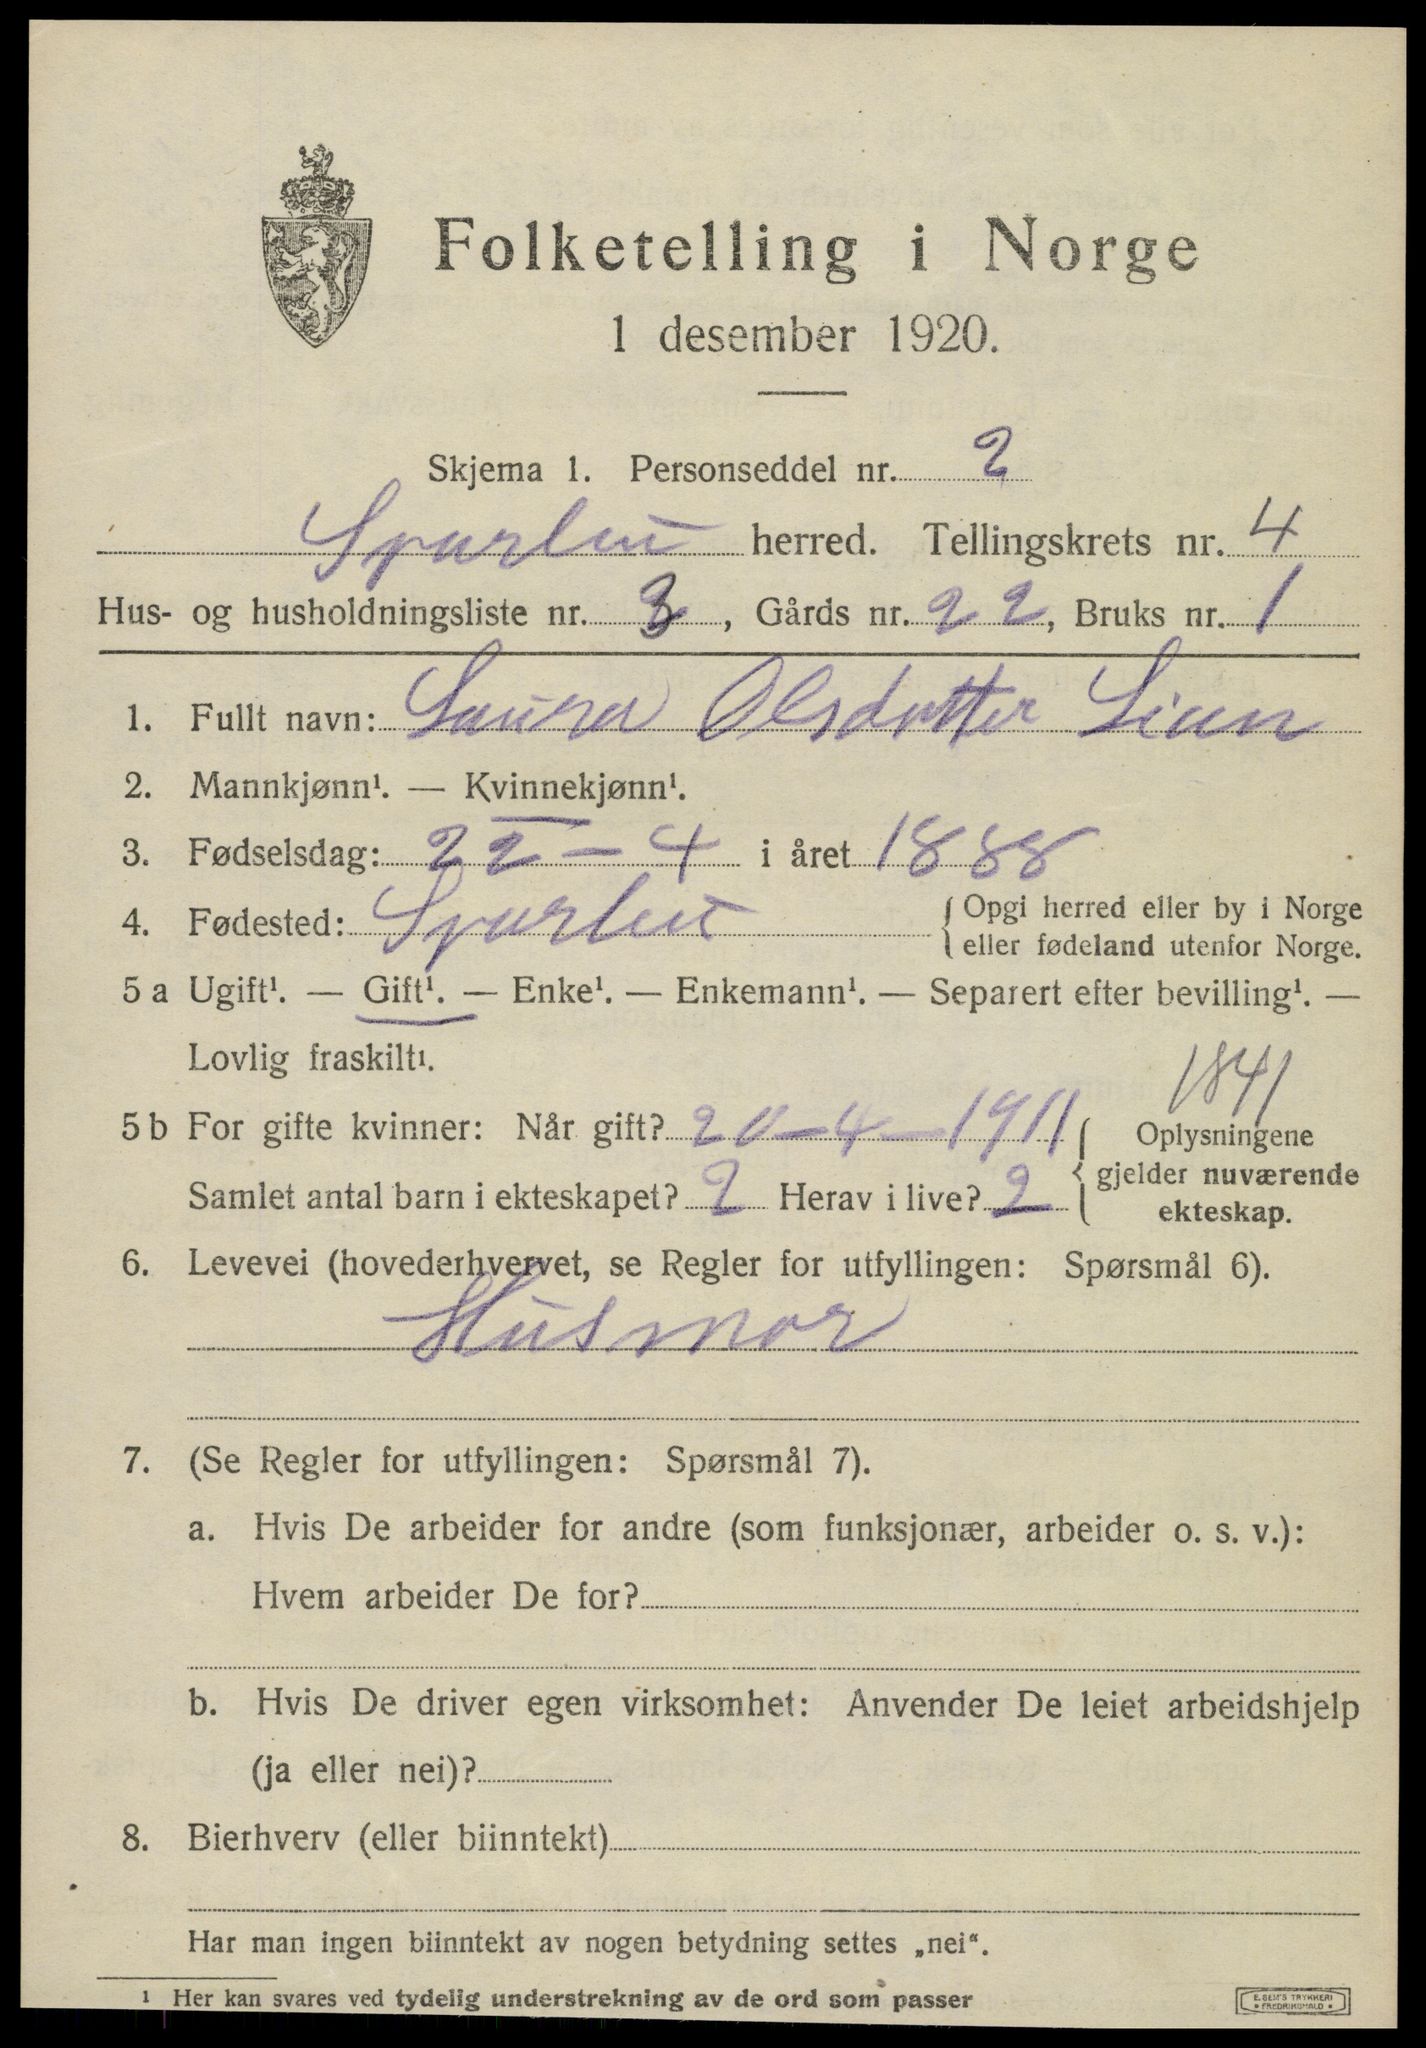 Folketelling i Norge
1 desember 1920.
Skjema 1. Personseddel nr. 2
Sparbu herred. Tellingskrets nr. 4
Hus- og husholdningsliste nr. 3, Gårds nr. 22, Bruks nr. 1
1. Fullt navn: Laura Olsdatter Lian
2. Mannkjønn¹. — Kvinnekjønn¹.
3. Fødselsdag: 22 – 4 i året 1888
4. Fødested: Sparbu { Opgi herred eller by i Norge
eller fødeland utenfor Norge.
5 a Ugift¹. — Gift¹. — Enke¹. — Enkemann¹. — Separert efter bevilling¹. —
Lovlig fraskilt¹.
1841
5 b For gifte kvinner: Når gift? 20–4–1911 { Oplysningene
gjelder nuværende
ekteskap.
Samlet antal barn i ekteskapet? 2 Herav i live? 2
6. Levevei (hovederhvervet, se Regler for utfyllingen: Spørsmål 6).
Husmor
7. (Se Regler for utfyllingen: Spørsmål 7).
a. Hvis De arbeider for andre (som funksjonær, arbeider o. s. v.):
Hvem arbeider De for?
b. Hvis De driver egen virksomhet: Anvender De leiet arbeidshjelp
(ja eller nei)?
8. Bierhverv (eller biinntekt)
Har man ingen biinntekt av nogen betydning settes „nei“.
¹ Her kan svares ved tydelig understrekning av de ord som passer
E. SEM'S TRYKKERI
• FREDRIKSHALD •